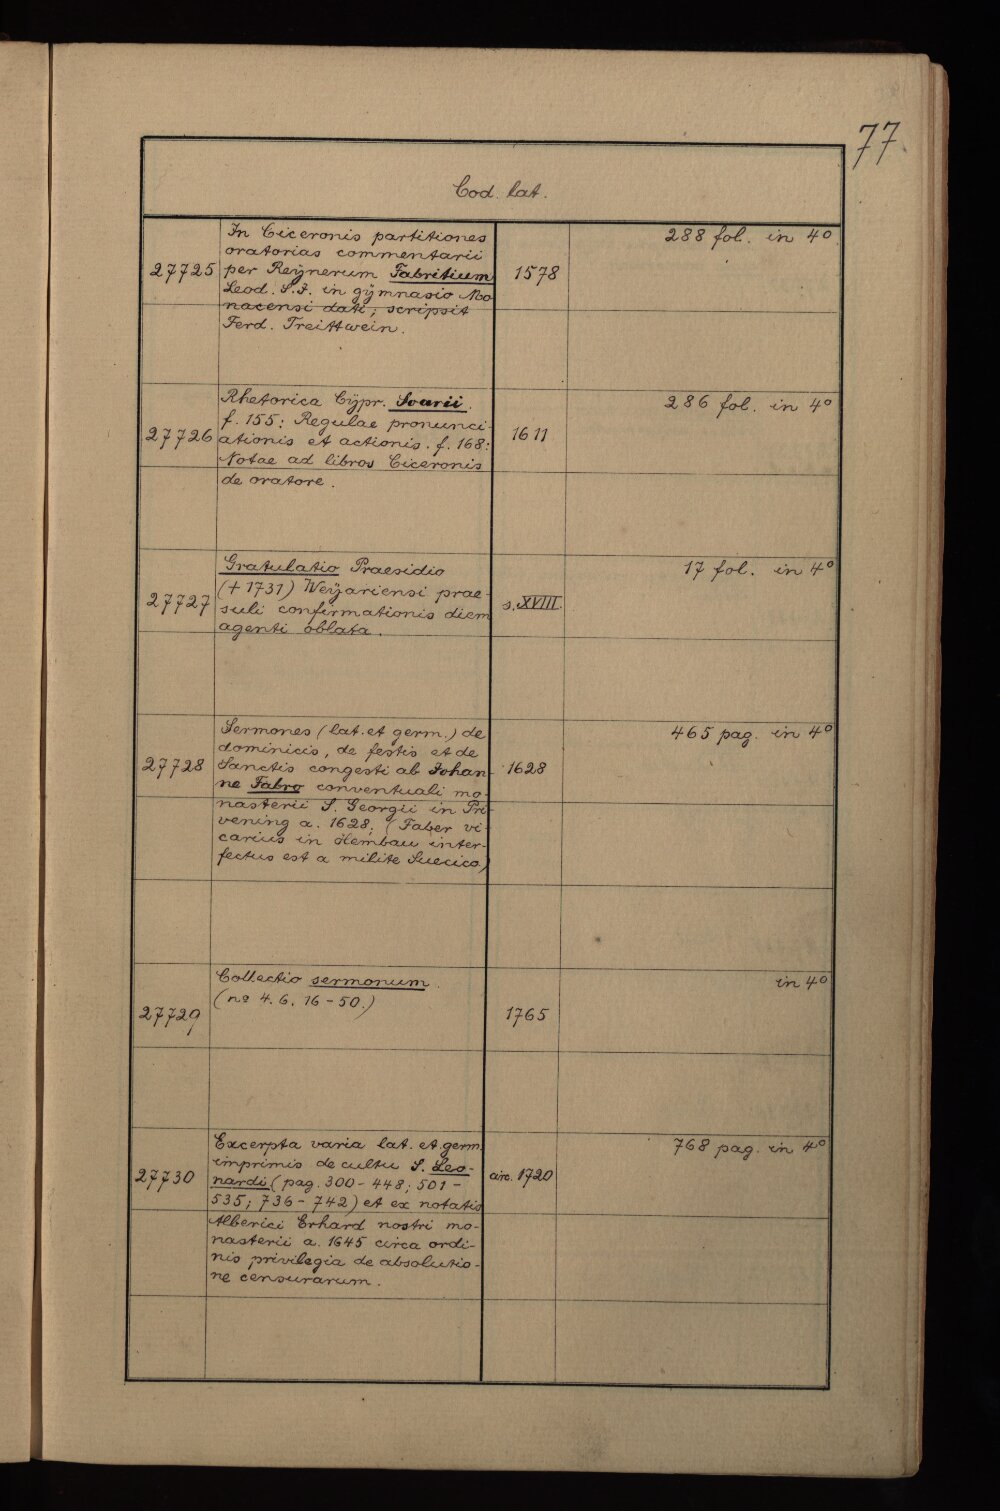 77.
Cod. lat.
In Ciceronis partitiones
oratorias commentarii
27725 per Reÿnerum Fabritium 1578 288 fol. in 4º
Leod. S.J. in gÿmnasio Mo
nacensi dati; scripsit
Ferd. Treittwein.
Rhetorica Cÿpr. Soarii. 286 fol. in 4º
f. 155: Regulae pronunci-
27726 ationis et actionis. f. 168: 1611
Notae ad libros Ciceronis
de oratore.
Gratulatio Praesidio 17 fol. in 4º
(+ 1731) Weÿariensi prae-
27727 suli confirmationis diem s. XVIII.
agenti oblata.
Sermones (lat. et germ.) de 465 pag. in 4º
dominicis, de festis et de
27728 Sanctis congesti ab Johan- 1628
ne Fabro conventuali mo-
nasterii S. Georgii in Pri-
vening a. 1628; (Faber vi-
carius in Hembau inter-
fectus est a milite Suecico.)
Collectio sermonum. in 4º
(nº 4. 6. 16-50.)
27729 1765
Excerpta varia lat. et germ. 768 pag. in 4º
imprimis de cultu S. Leo-
27730 nardi (pag. 300-448; 501- circ. 1720
535; 736-742) et ex notatis
Alberici Erhard nostri mo-
nasterii a. 1645 circa ordi-
nis privilegia de absolutio-
ne censurarum.